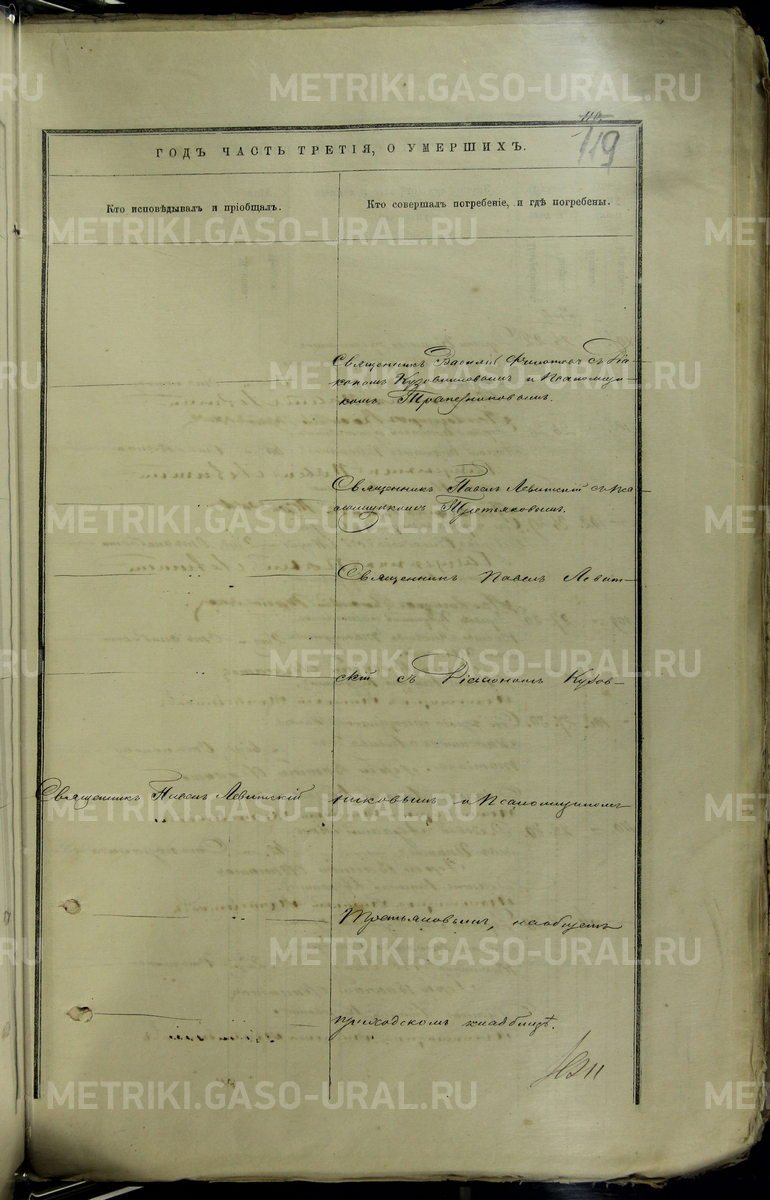 METRIKI.GASO-URAL.RU
119
ГОДЪ ЧАСТЬ ТРЕТІЯ, О УМЕРШИХЪ.
Кто исповѣдывалъ и пріобщалъ.
Кто совершалъ погребеніе, и гдѣ погребены.
Священникъ Василій Филотеев съ Діа-
кономъ и Псаломщи-
комъ Трапезниковымъ.
Священникъ Павелъ Левитскій съ Пса-
ломщикомъ Третьяковымъ.
Священникъ Павелъ Левит-
скій съ Діакономъ Кузов-
Священникъ Павелъ Левитскій
никовымъ и Псаломщикомъ
Третьяковымъ, на общемъ
приходскомъ кладбищѣ.